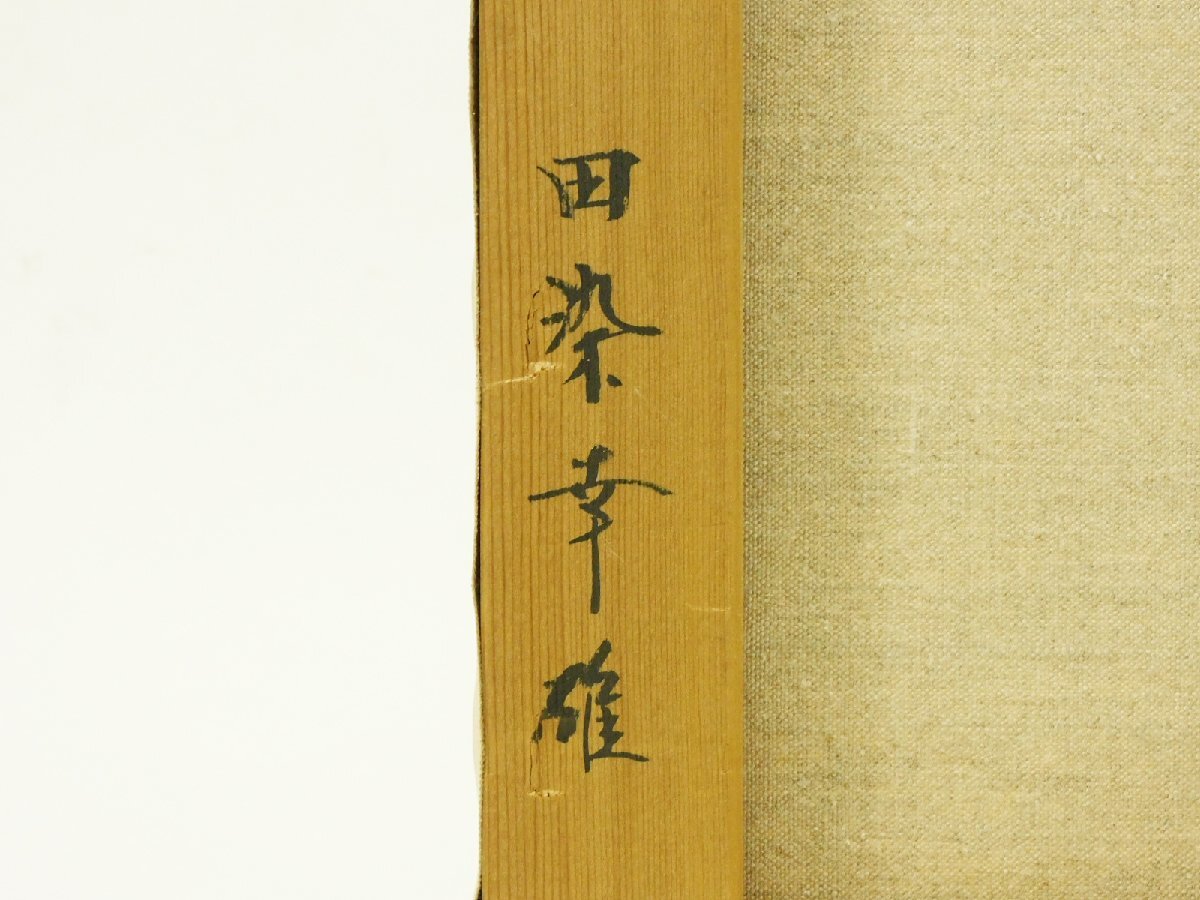 田染幸雄